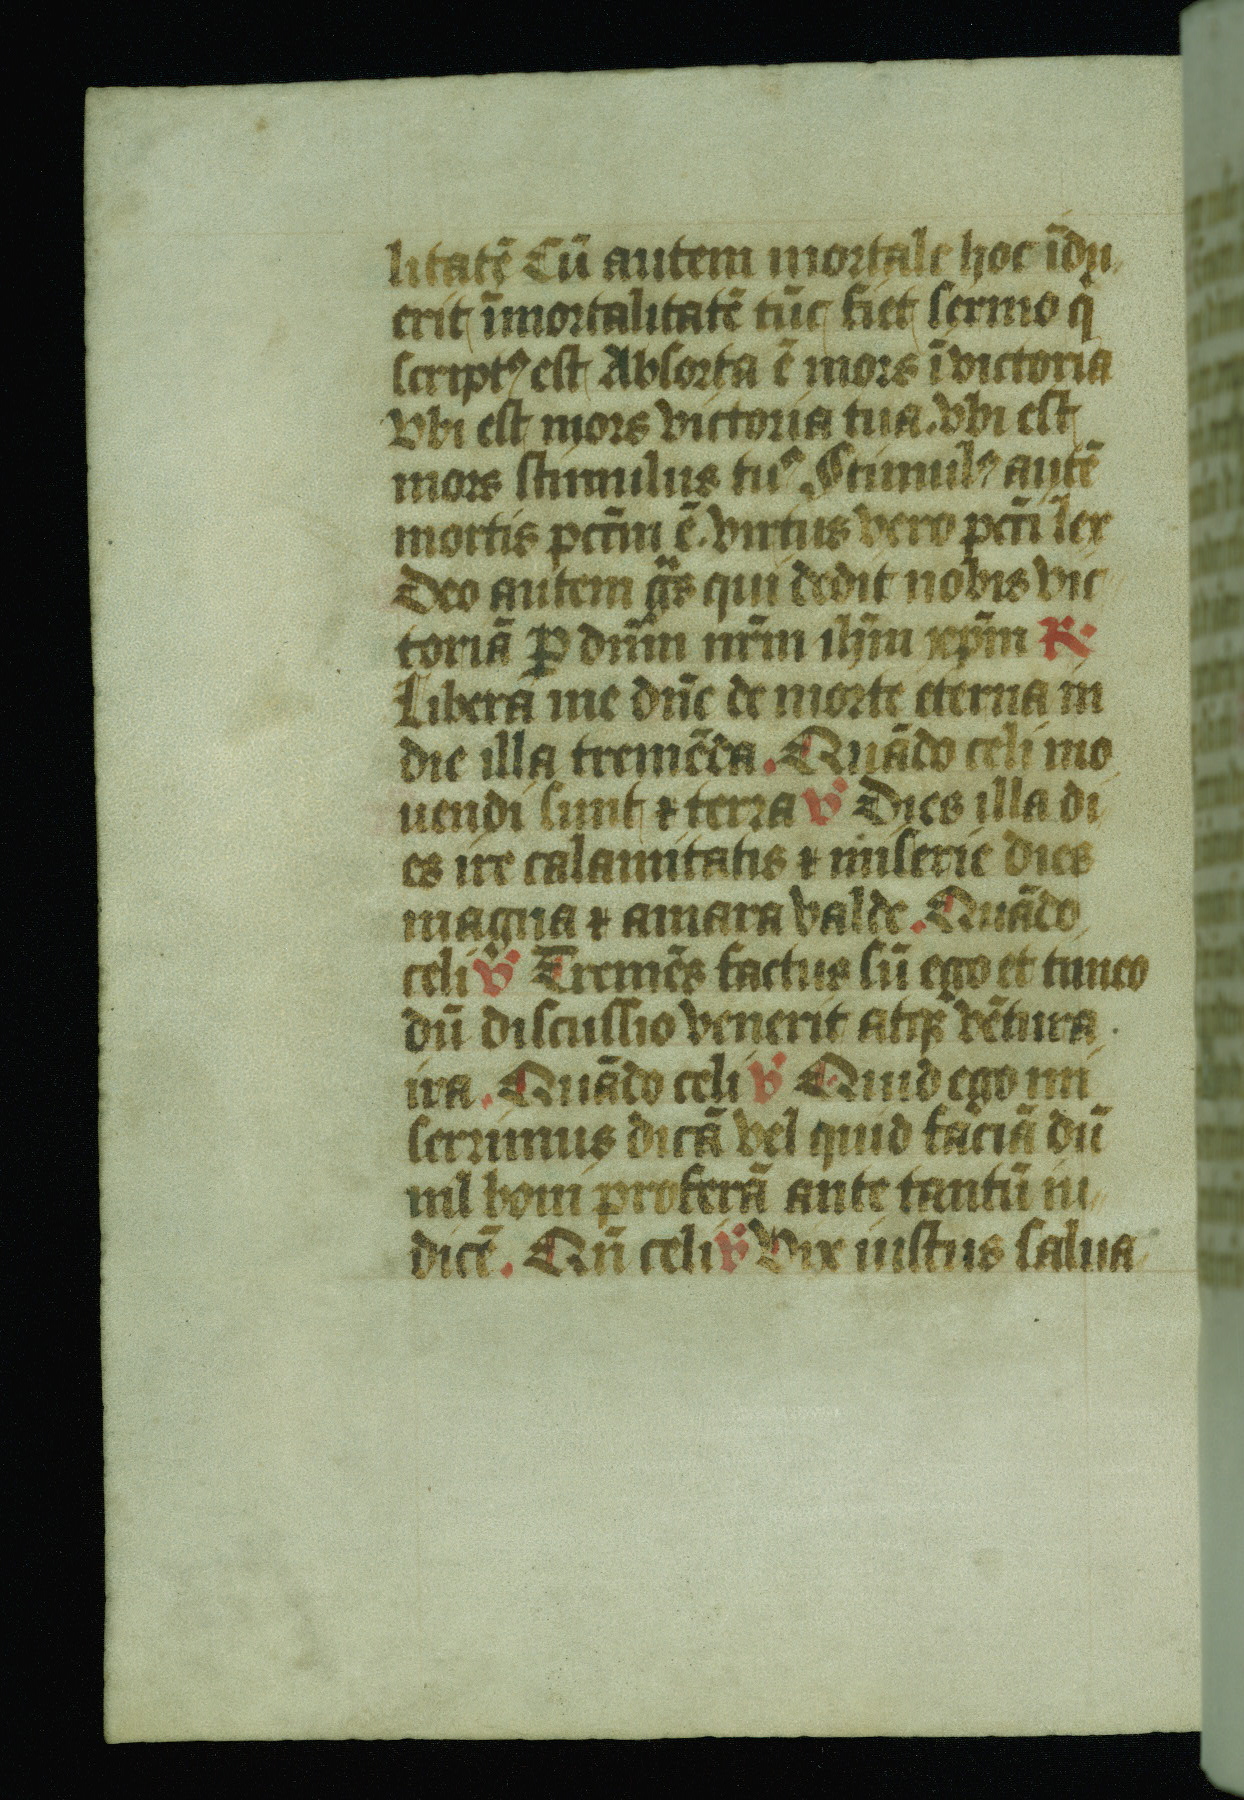 litatē Cū autem mortale hoc īdu
erit īmortalitatē tūc fiet sermo q̄
scriptꝰ est Absorta ē mors ī victoria
Vbi est mors victoria tua. vbi est
mors stimulus tuꝰ Stimulꝰ autē
mortis pctm̄ ē. virtus vero pcti̅ lex
Deo autem gr̄as qui dedit nobis vic
toriā P dn̄m nr̄m ihm̄ xpm̄ R
Libera me dn̄e de morte eterna in
die illa tremēda. Quādo celi mo
uendi sunt ⁊ terra V Dies illa di
es ire calamitatis ⁊ miserie dies
magna ⁊ amara valde. Quādo
celi V Tremēs factus sū ego et timeo
dū discussio venerit atqꝫ vētura
ira. Quādo celi V Quid ego mi
serrimus dicā vel quid faciā dū
nil boni proferā ante tantū iu
dicē. Qn̄ celi V Vix iustus salua